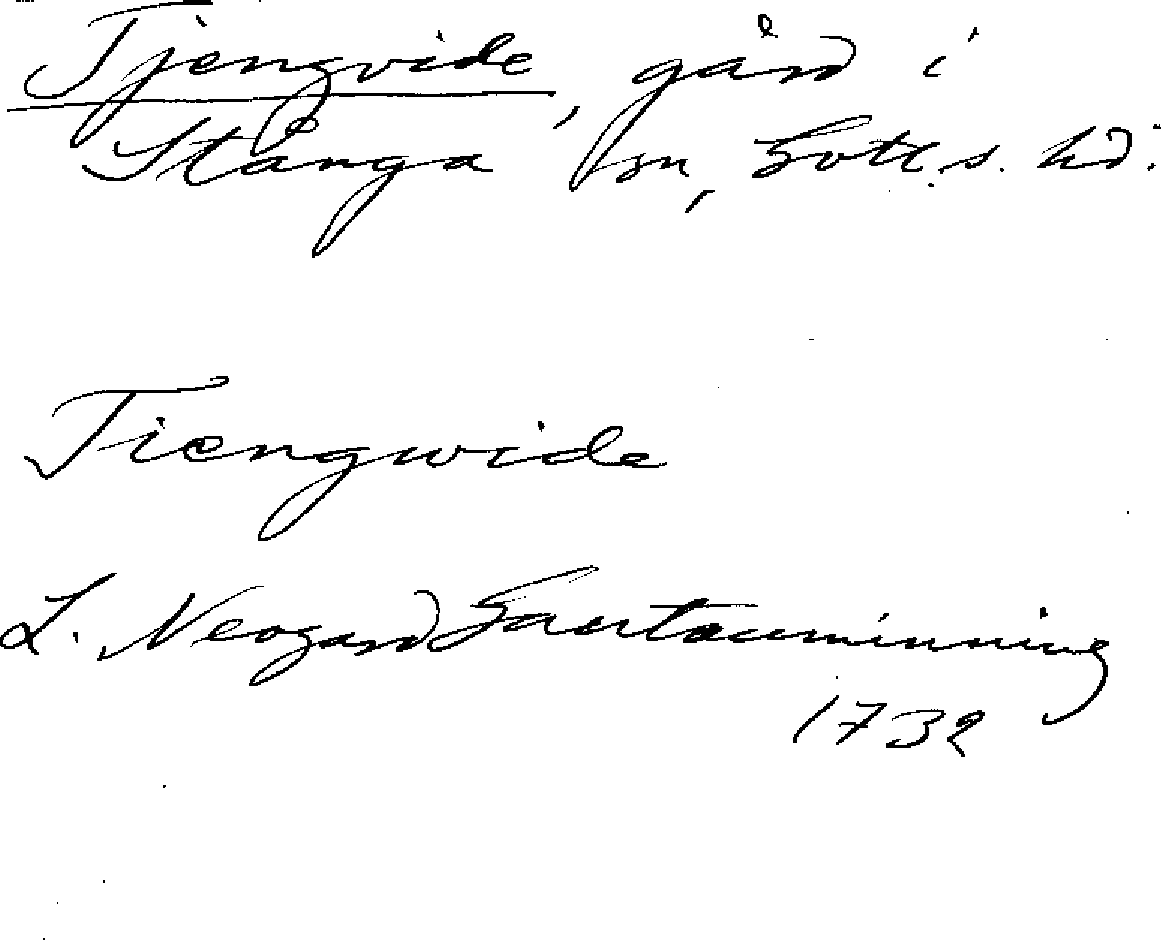 Tjengvide, gård i
Stånga sn, Gotl. s. hd.
Tiengwide
L. Neogard Gautauminning
1732